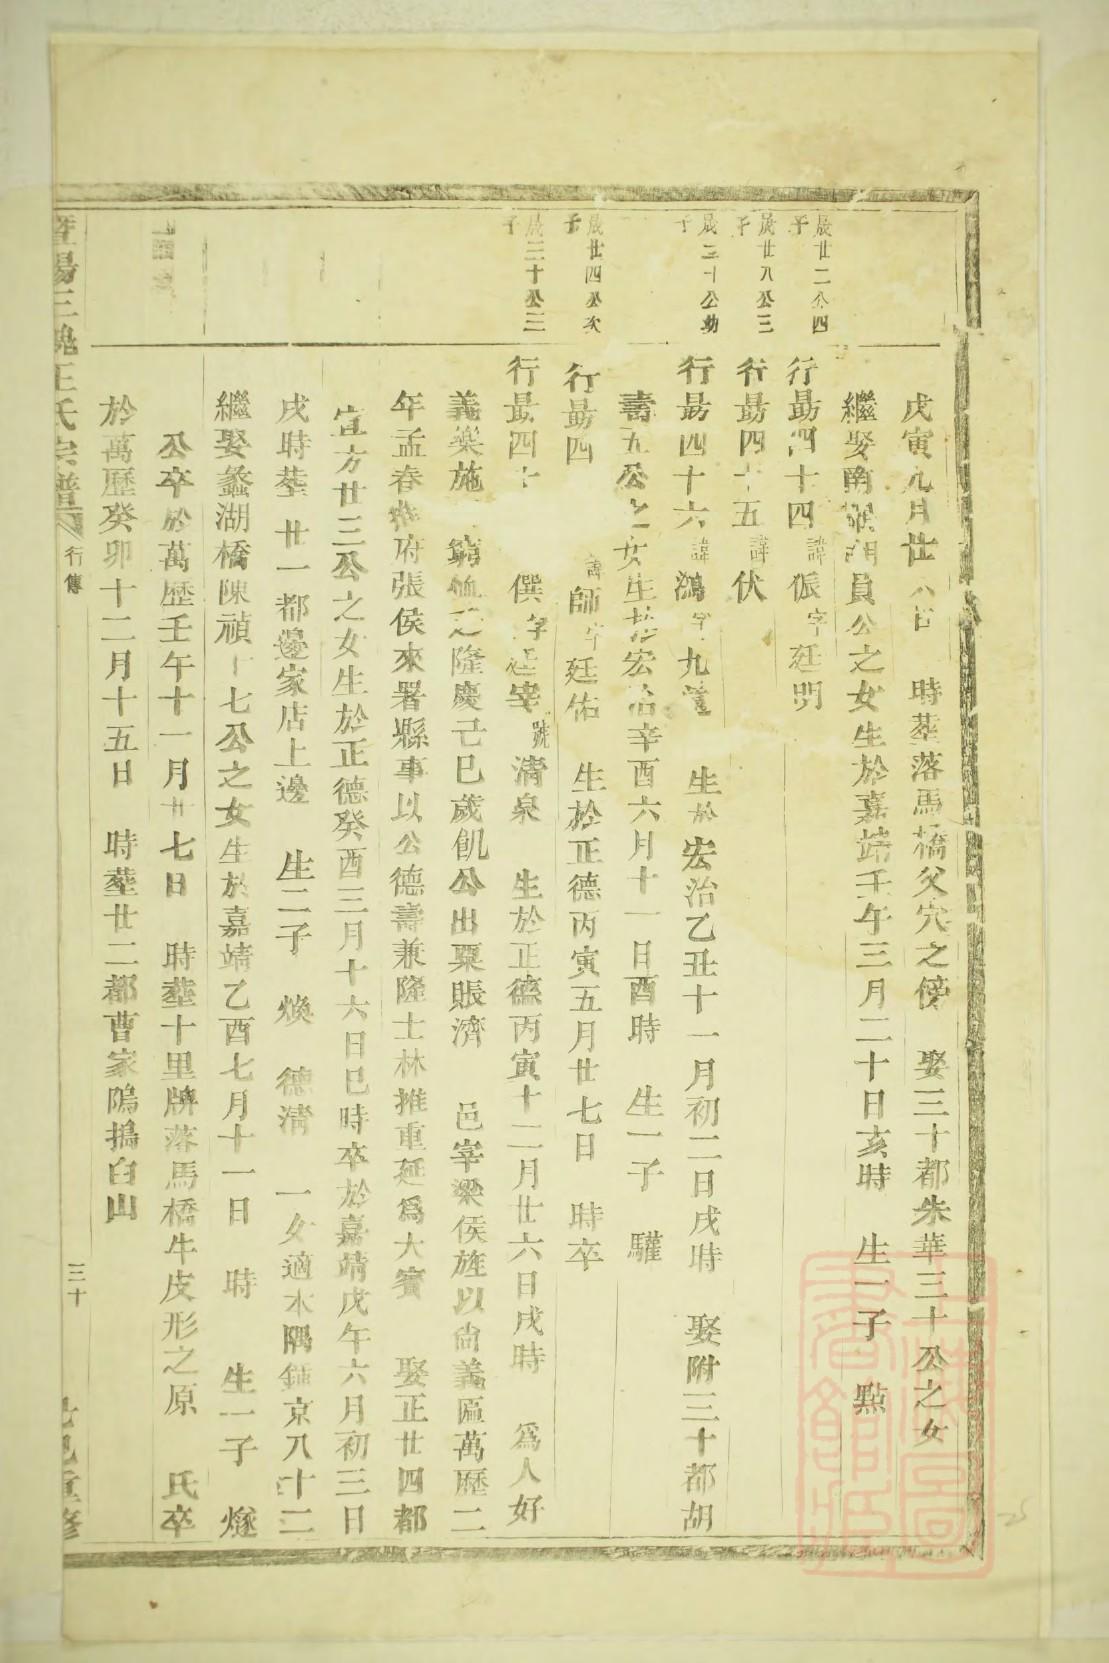 戊寅九月廿八日 時塟落馬橋父穴之傍 娶三十都朱華三十公之女
繼娶南隅胡員公之女生於嘉靖壬午三月二十日亥時 生一子 點
晟廿二公四子
行勗四十四諱侲字廷明
晟廿八公三子
行勗四十五諱伏
晟三十公幼子
行勗四十六諱鴻字九 生於宏治乙丑十一月初二日戌時 娶附三十都胡
壽五公之女生於宏治辛酉六月十一日酉時 生一子 驩
晟廿四公次子
行勗四 諱師字廷佑 生於正德丙寅五月廿七日 時卒
晟三十公三子
行勗四十 僎字廷宰號清泉 生於正德丙寅十二月廿六日戌時 爲人好
義樂施 窮恤 隆慶己巳歲飢公出粟賑濟 邑宰梁侯旌以尙義匾萬歷二
年孟春 府張侯來署縣事以公德壽兼隆士林推重延爲大賓 娶正廿四都
宜方廿三公之女生於正德癸酉三月十六日巳時卒於嘉靖戊午六月初三日
戌時塟廿一都邊家店上邊 生二子 煥 德清 一女適本隅鍾京八十二
繼娶蠡湖橋陳禎十七公之女生於嘉靖乙酉七月十一日 時 生一子 燧
公卒於萬歷壬午十一月廿七日 時塟十里牌落馬橋牛皮形之原 氏卒
於萬歷癸卯十二月十五日 時塟廿二都曹家隖搗臼山
暨陽三槐王氏宗譜 行傳 三十